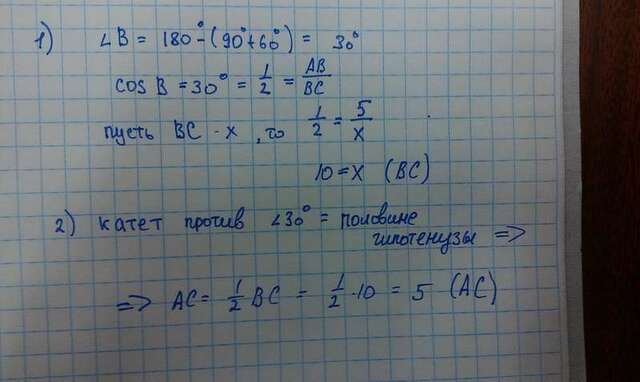 1) ∠B = 180° - (90° + 60°) = 30°
cos B = 30° = 1/2 = AB/BC
пусть BC - x, то 1/2 = 5/x
10 = x (BC)
2) катет против ∠30° = половине
гипотенузы =>
=> AC = 1/2 BC = 1/2 · 10 = 5 (AC)